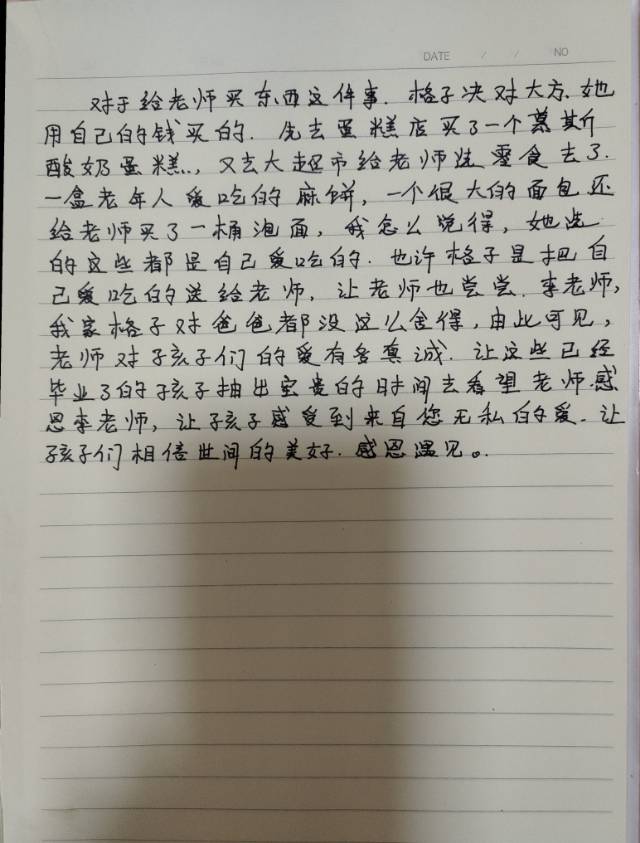 DATE / / NO
对于给老师买东西这件事.格子决对大方.她
用自己的钱买的.先去蛋糕店买了一个慕斯
酸奶蛋糕..,又去大超市给老师选零食去了.
一盒老年人爱吃的麻饼,一个很大的面包还
给老师买了一桶泡面,我怎么觉得,她选
的这些都是自己爱吃的.也许格子是把自
己爱吃的送给老师,让老师也尝尝.李老师,
我家格子对爸爸都没这么舍得,由此可见,
老师对孩子们的爱有多真诚.让这些已经
毕业了的孩子抽出宝贵的时间去看望老师.感
恩李老师,让孩子感受到来自您无私的爱.让
孩子们相信世间的美好.感恩遇见。.